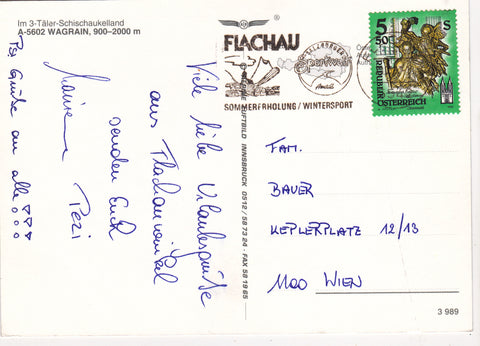 Im 3-Täler-Schischaukelland
A-5602 WAGRAIN, 900–2000 m
Viele liebe Urlaubsgrüße
aus Flachauwinkel
senden Euch
Pezi
Ps: Grüße an alle!
INNSBRUCK 0512/58 73 24 · FAX 58 19 65
FLACHAU
Sportwelt
Amadé
SOMMERERHOLUNG / WINTERSPORT
5 50 S
REPUBLIK
ÖSTERREICH
FAM.
BAUER
KEPLERPLATZ 12/13
1100 WIEN
3 989